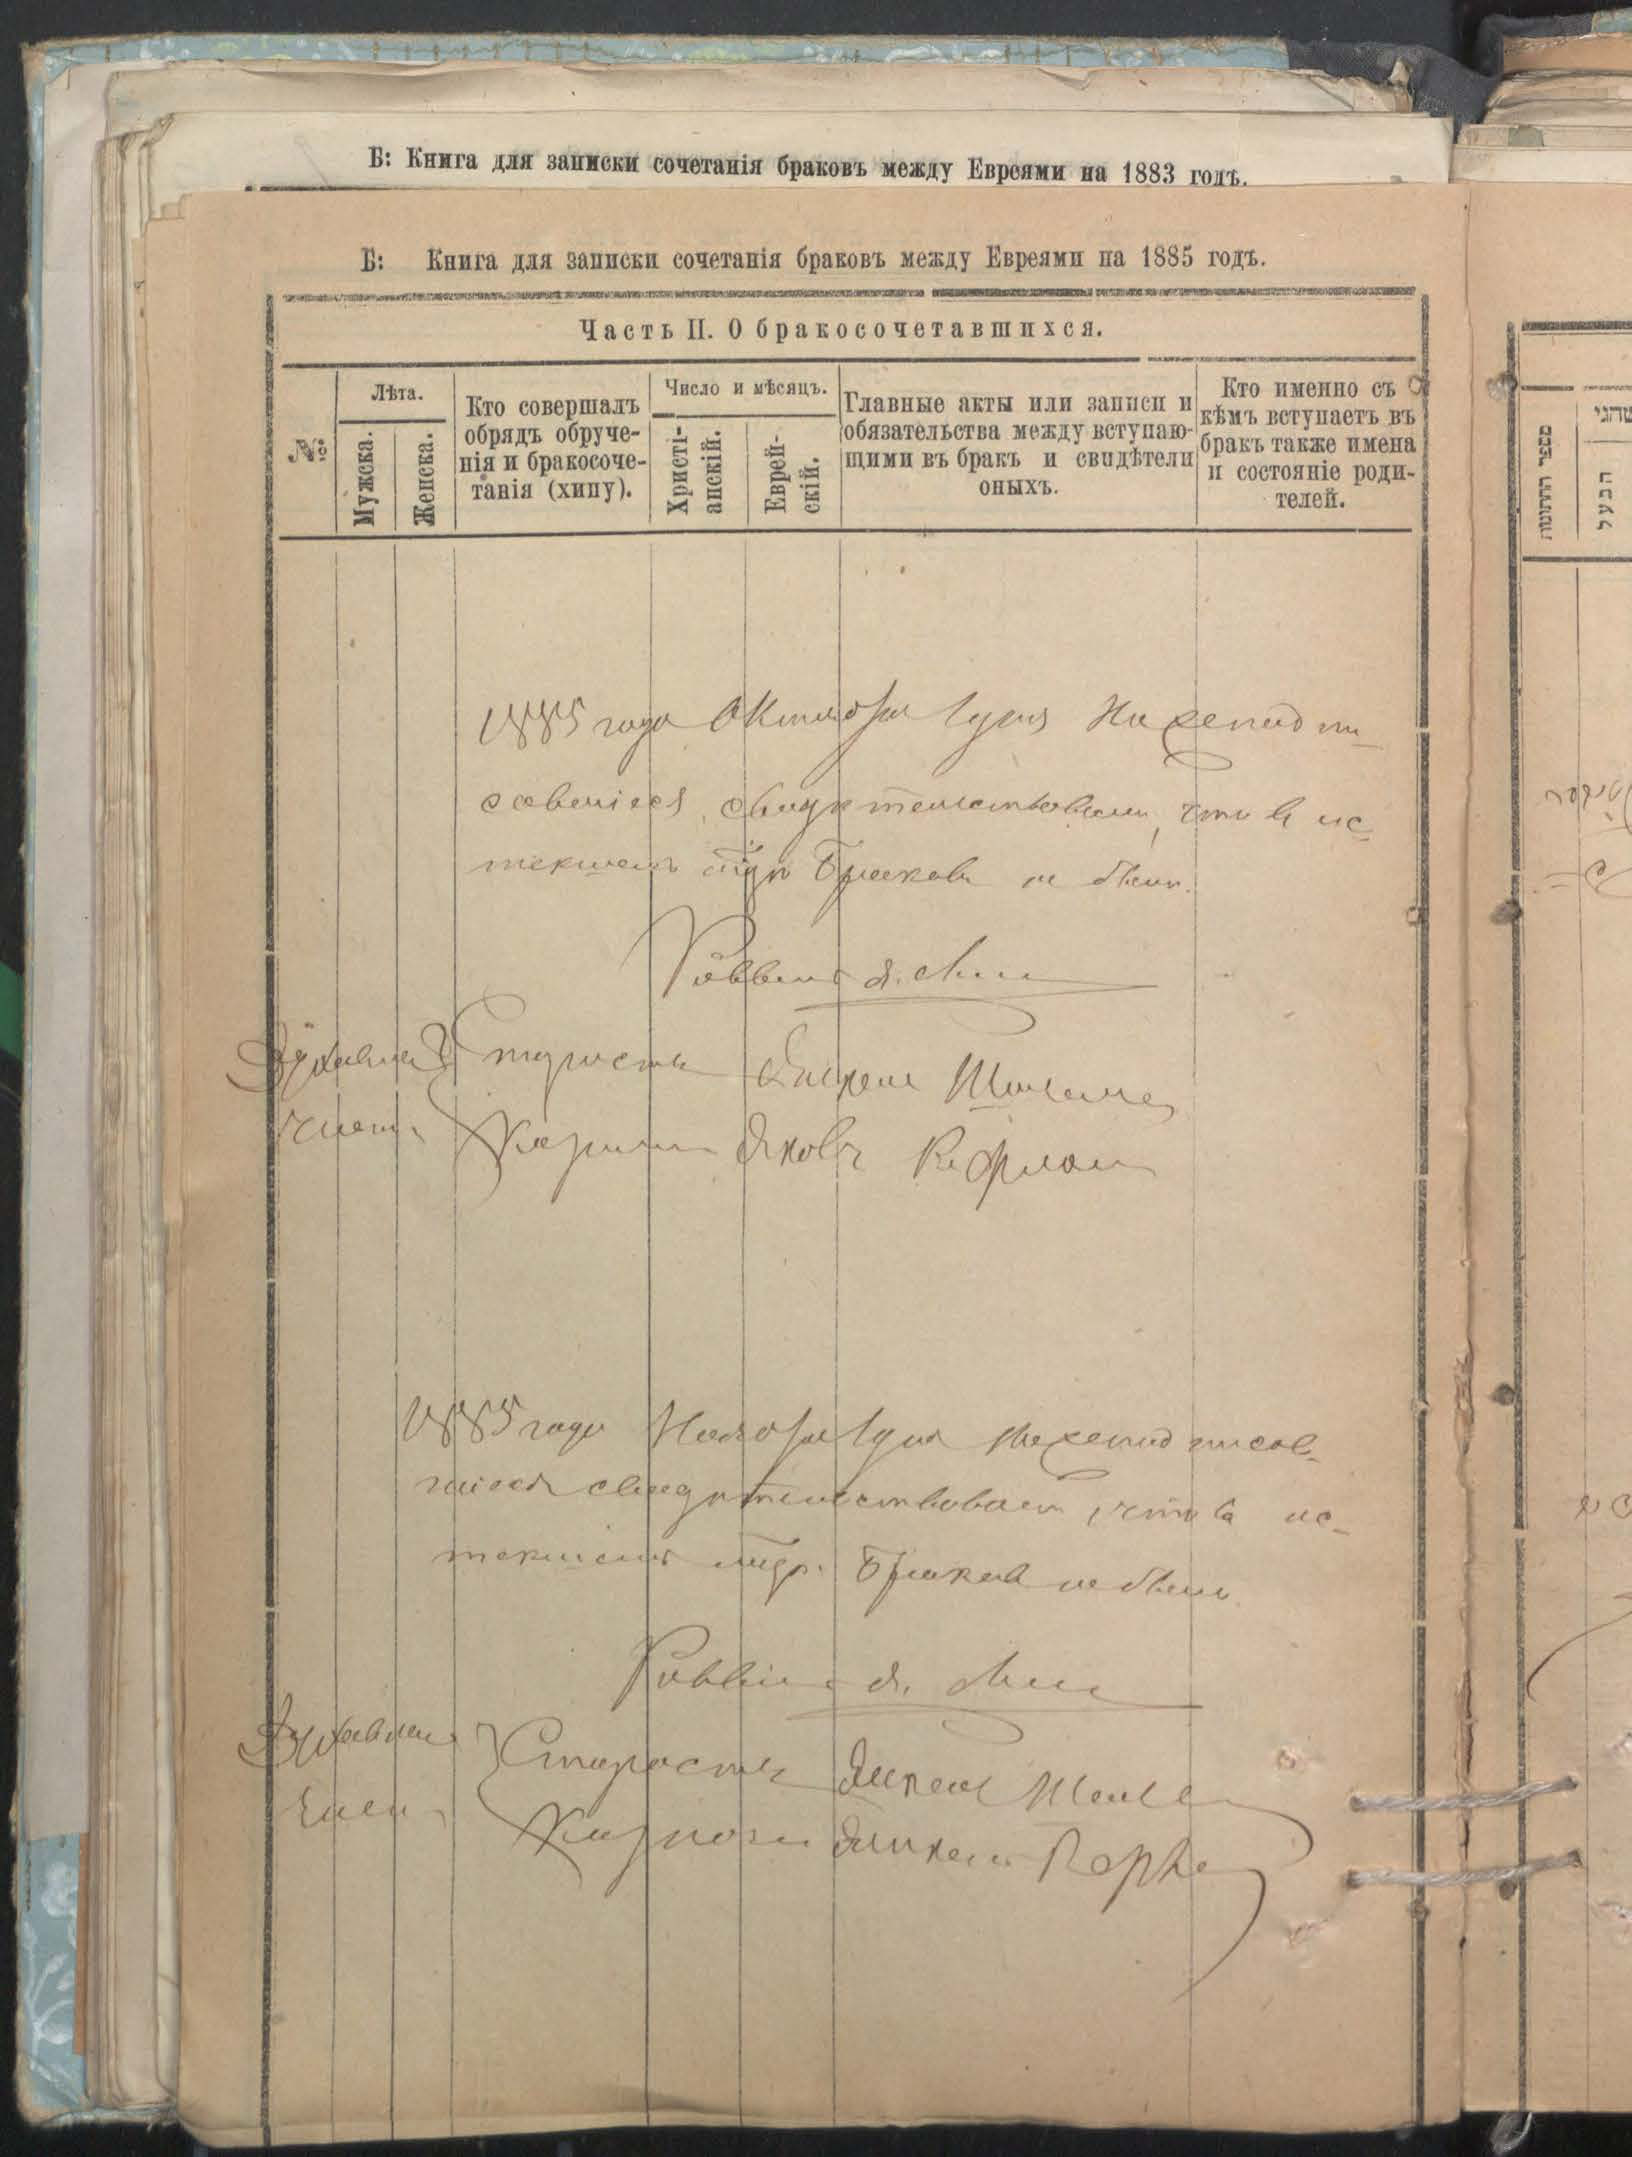 Б: Книга для записки сочетанія браковъ между Евреями на 1883 годъ.
Б: Книга для записки сочетанія браковъ между Евреями на 1885 годъ.
Часть II. О бракосочетавшихся.
№
Лѣта.
Мужска.
Женска.
Кто совершалъ
обрядъ обруче-
нія и бракосоче-
танія (хипу).
Число и мѣсяцъ.
Христі-
анскій.
Еврей-
скій.
Главные акты или записи и
обязательства между вступаю-
щими въ бракъ и свидѣтели
оныхъ.
Кто именно съ
кѣмъ вступаетъ въ
бракъ также имена
и состояніе роди-
телей.
1885 года Октября 1 дня Нижеподпи-
савшіеся свидѣтельствовали, что въ ис-
текшемъ браковъ не было.
Раввинъ Я.
Духовные Староста Янкель
члены Казначей Яковъ
1885 года Ноября 1 дня Нижеподписав-
шіеся свидѣтельствовали, что въ ис-
текшемъ браковъ не было
Раввинъ Я.
Духовные Староста Янкель
члены Казначей
מספר החתונות
הבעל